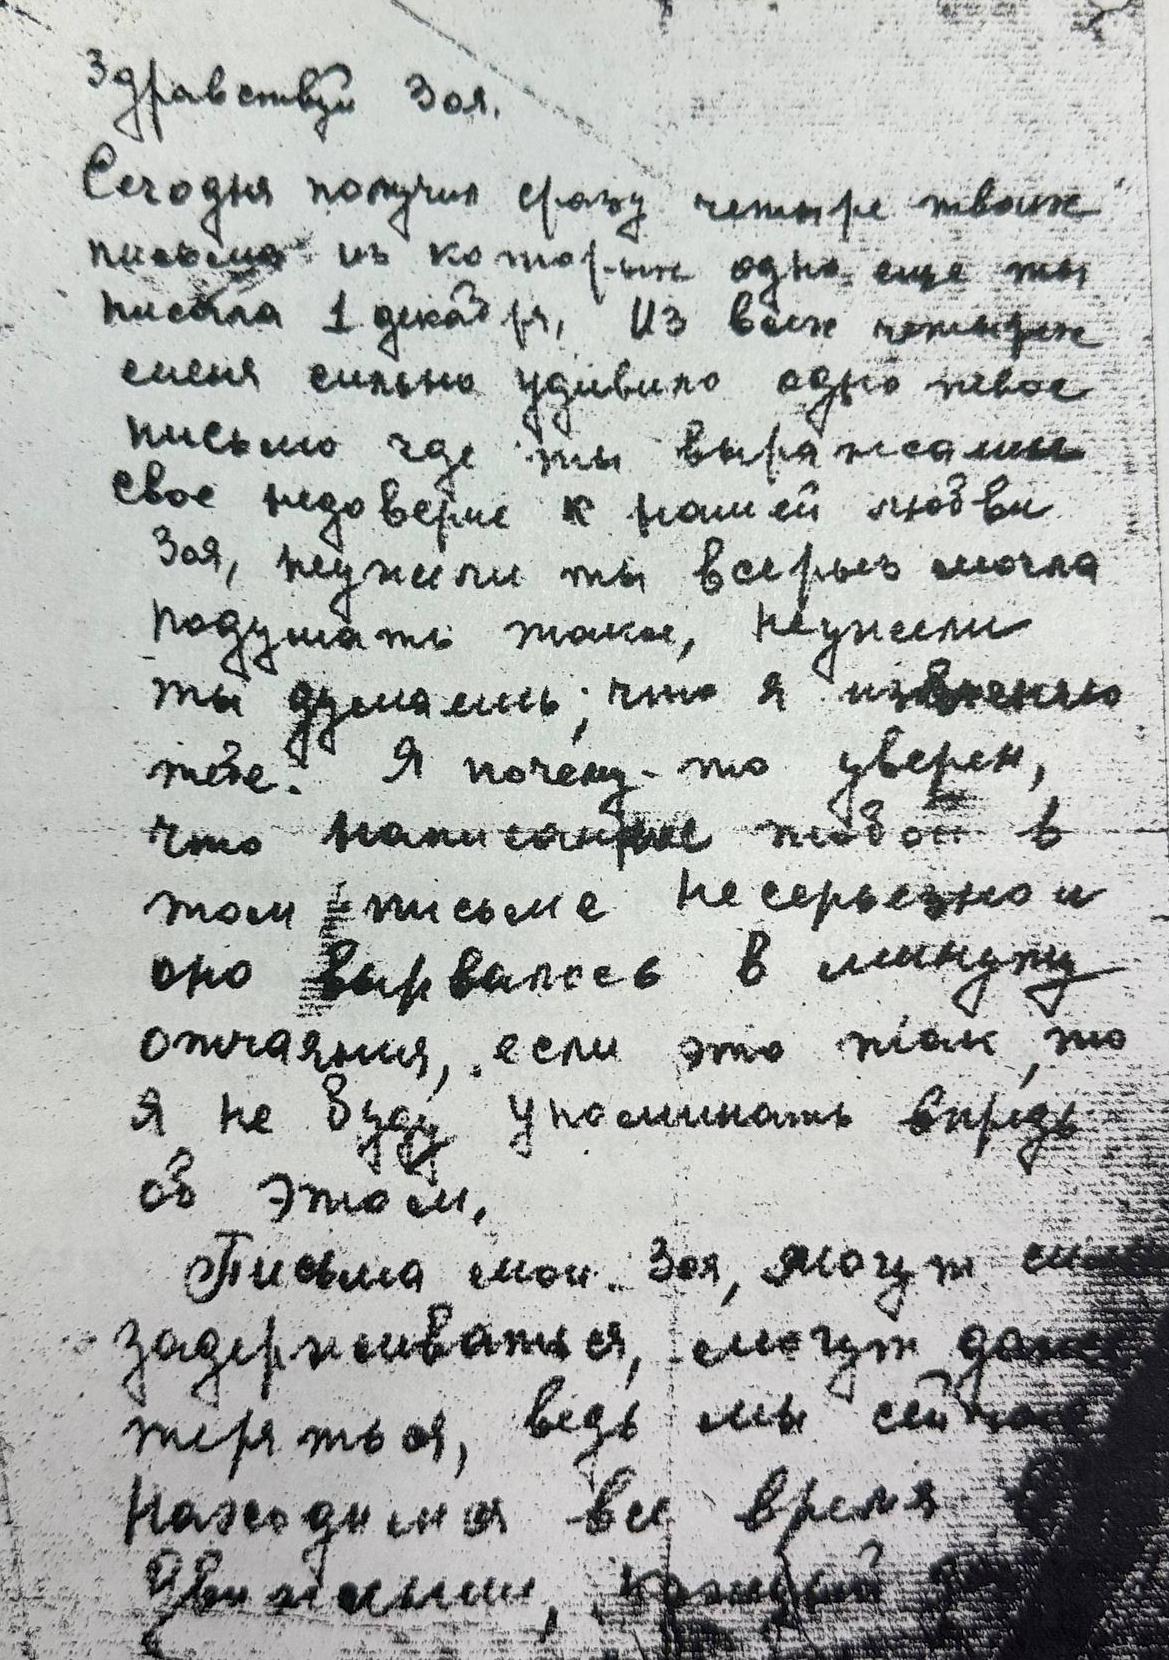 Здравствуй Зоя.
Сегодня получил сразу четыре твоих
письма из которых одно еще ты
писала 1 декабря, Из всех четырех
меня сильно удивило одно твое
письмо где ты выражаешь
свое недоверие к нашей любви
Зоя, неужели ты всерьез могла
подумать такое, неужели
ты думаешь, что я изменяю
тебе. Я почему-то уверен,
что написанное тобой в
том письме несерьезно и
оно вырвалось в минуту
отчаяния, если это так, то
я не буду упоминать впредь
об этом.
Письма мои Зоя, могут
задерживаться, могут даже
теряться, ведь мы сейчас
находимся все время в
движении, каждый